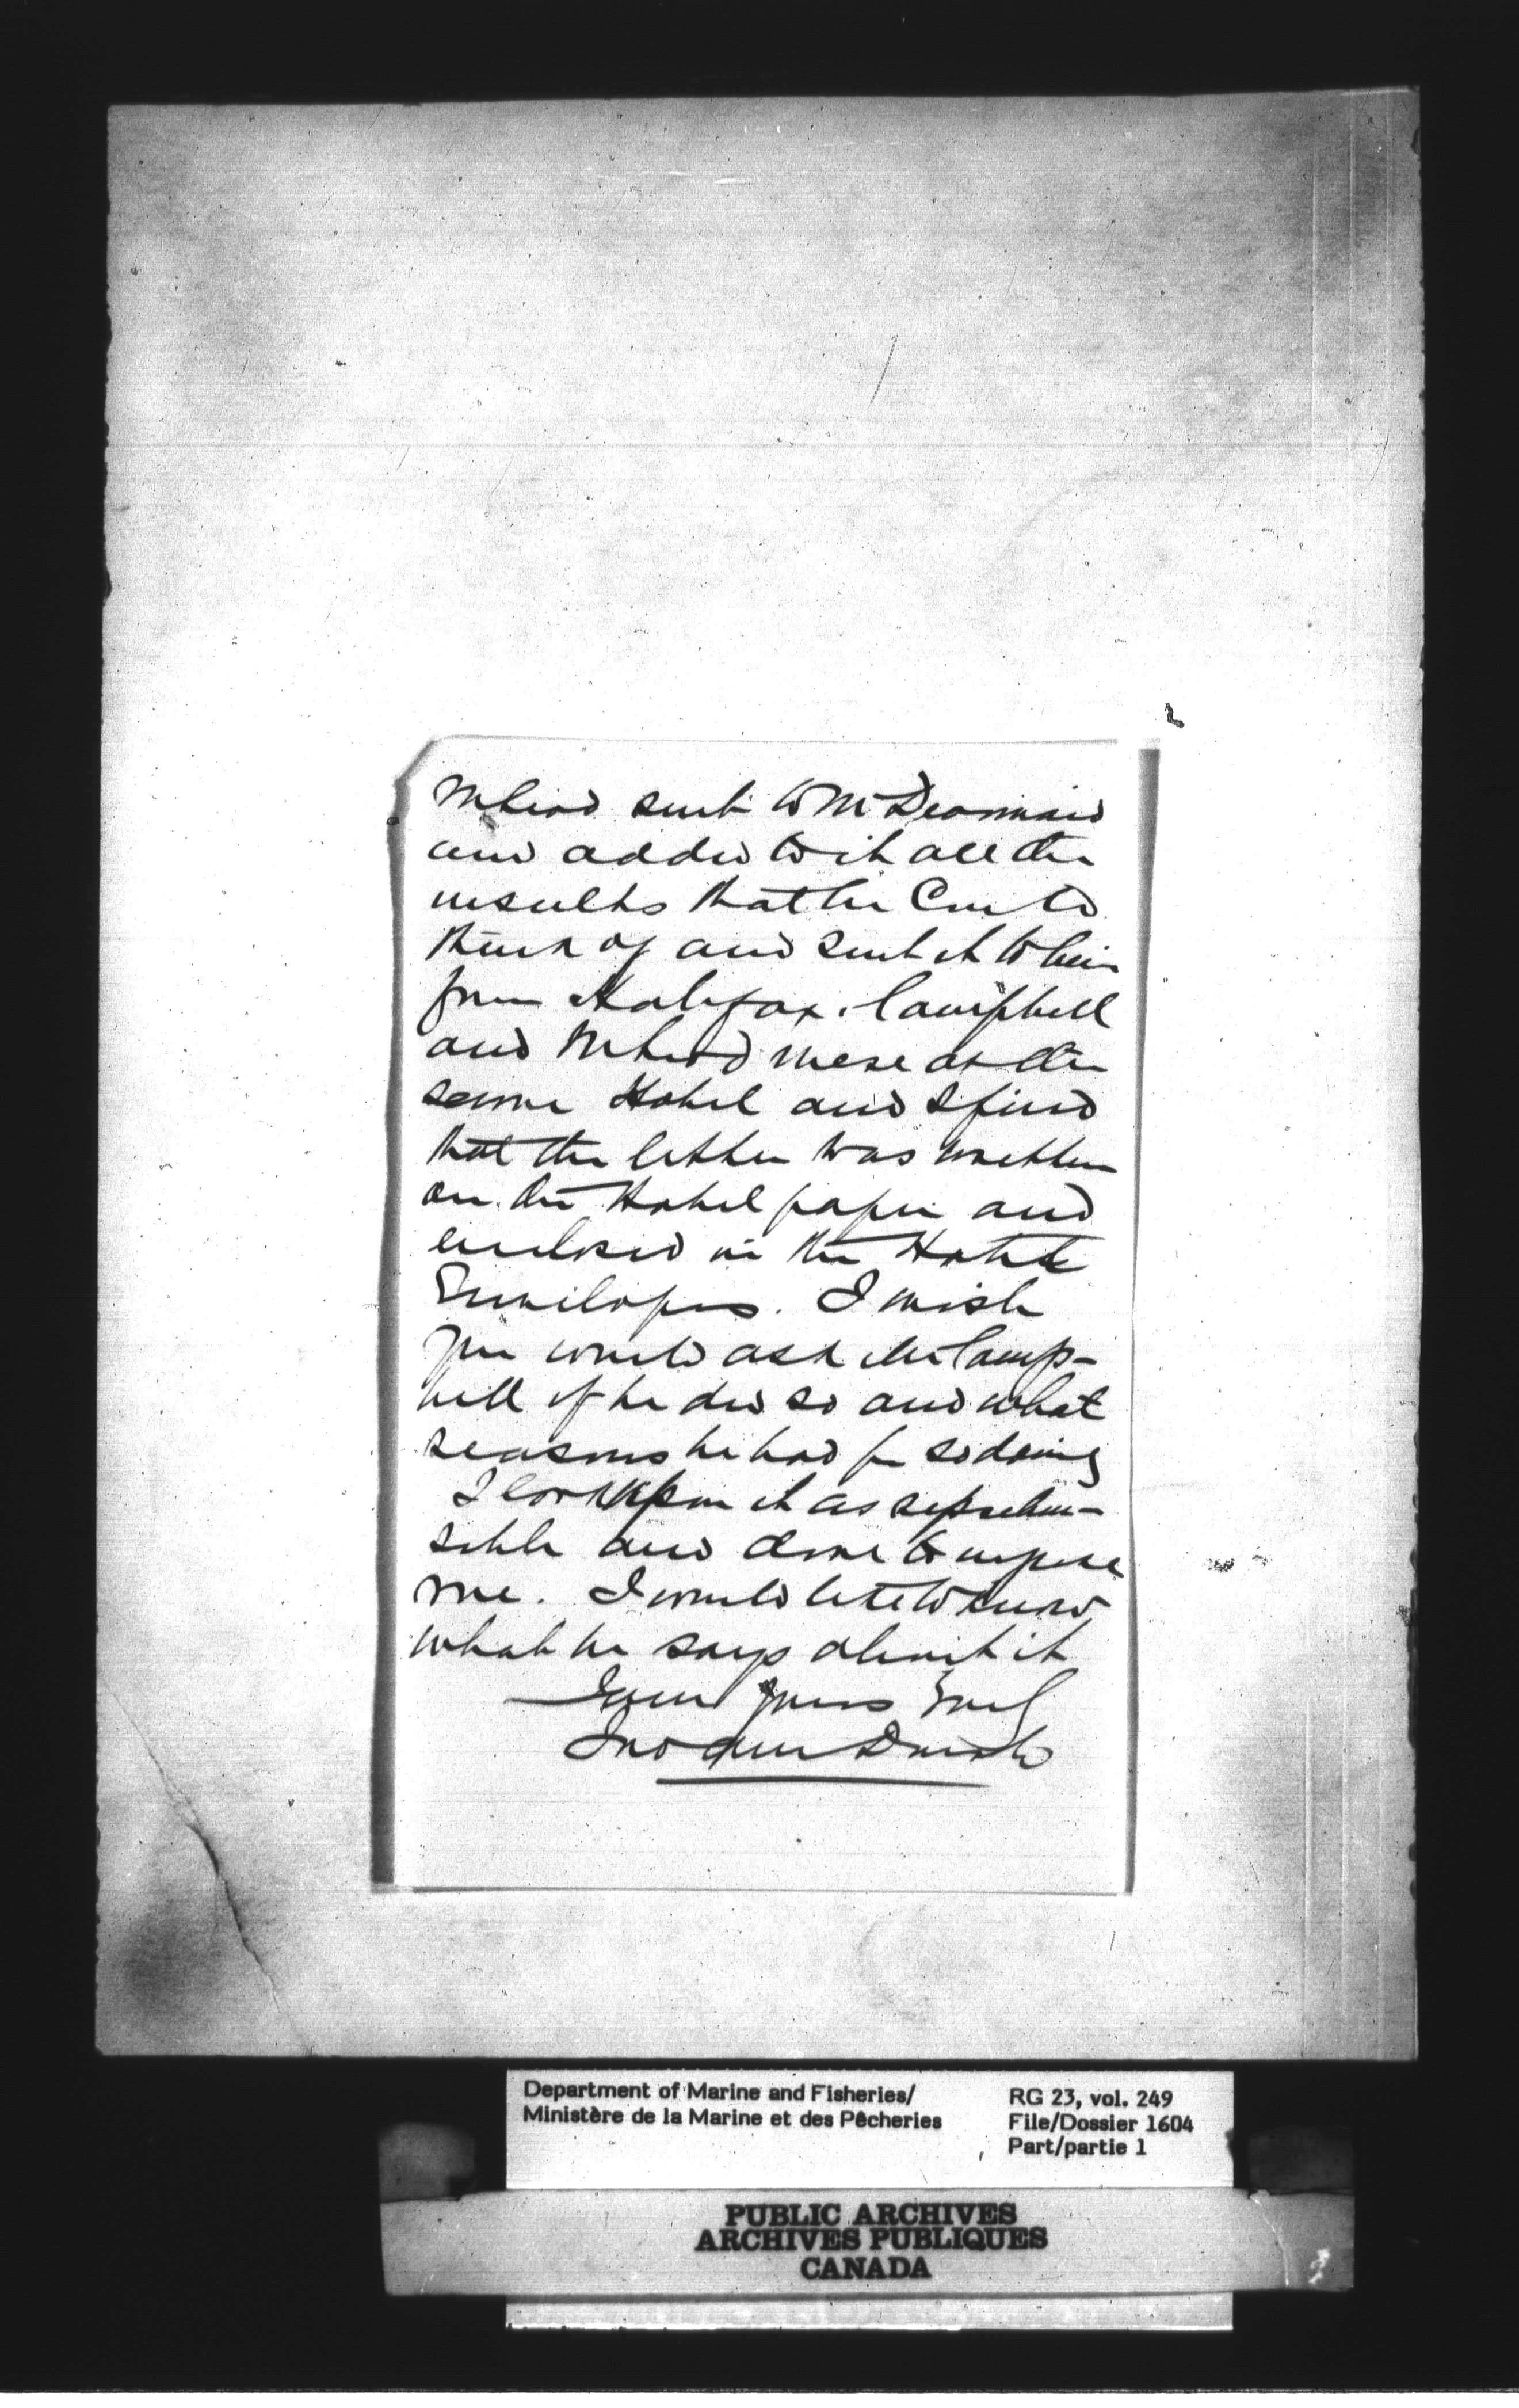 McLeod sent to McDearmaid
and added to it all the
insults that he Could
think of and sent it to him
from Halifax. Campbell
and McLeod were at the
same Hotel and I find
that the letter was written
on the Hotel paper and
enclosed in the Hotel
Envelopes. I wish
you would ask Mr Camp-
bell if he did so and what
reasons he had for so doing
I look upon it as reprehen-
sible and done to injure
me. I would like to know
what he says about it
I am yours Truly
Department of Marine and Fisheries/
Ministère de la Marine et des Pêcheries
RG 23, vol. 249
File/Dossier 1604
Part/partie 1
PUBLIC ARCHIVES
ARCHIVES PUBLIQUES
CANADA